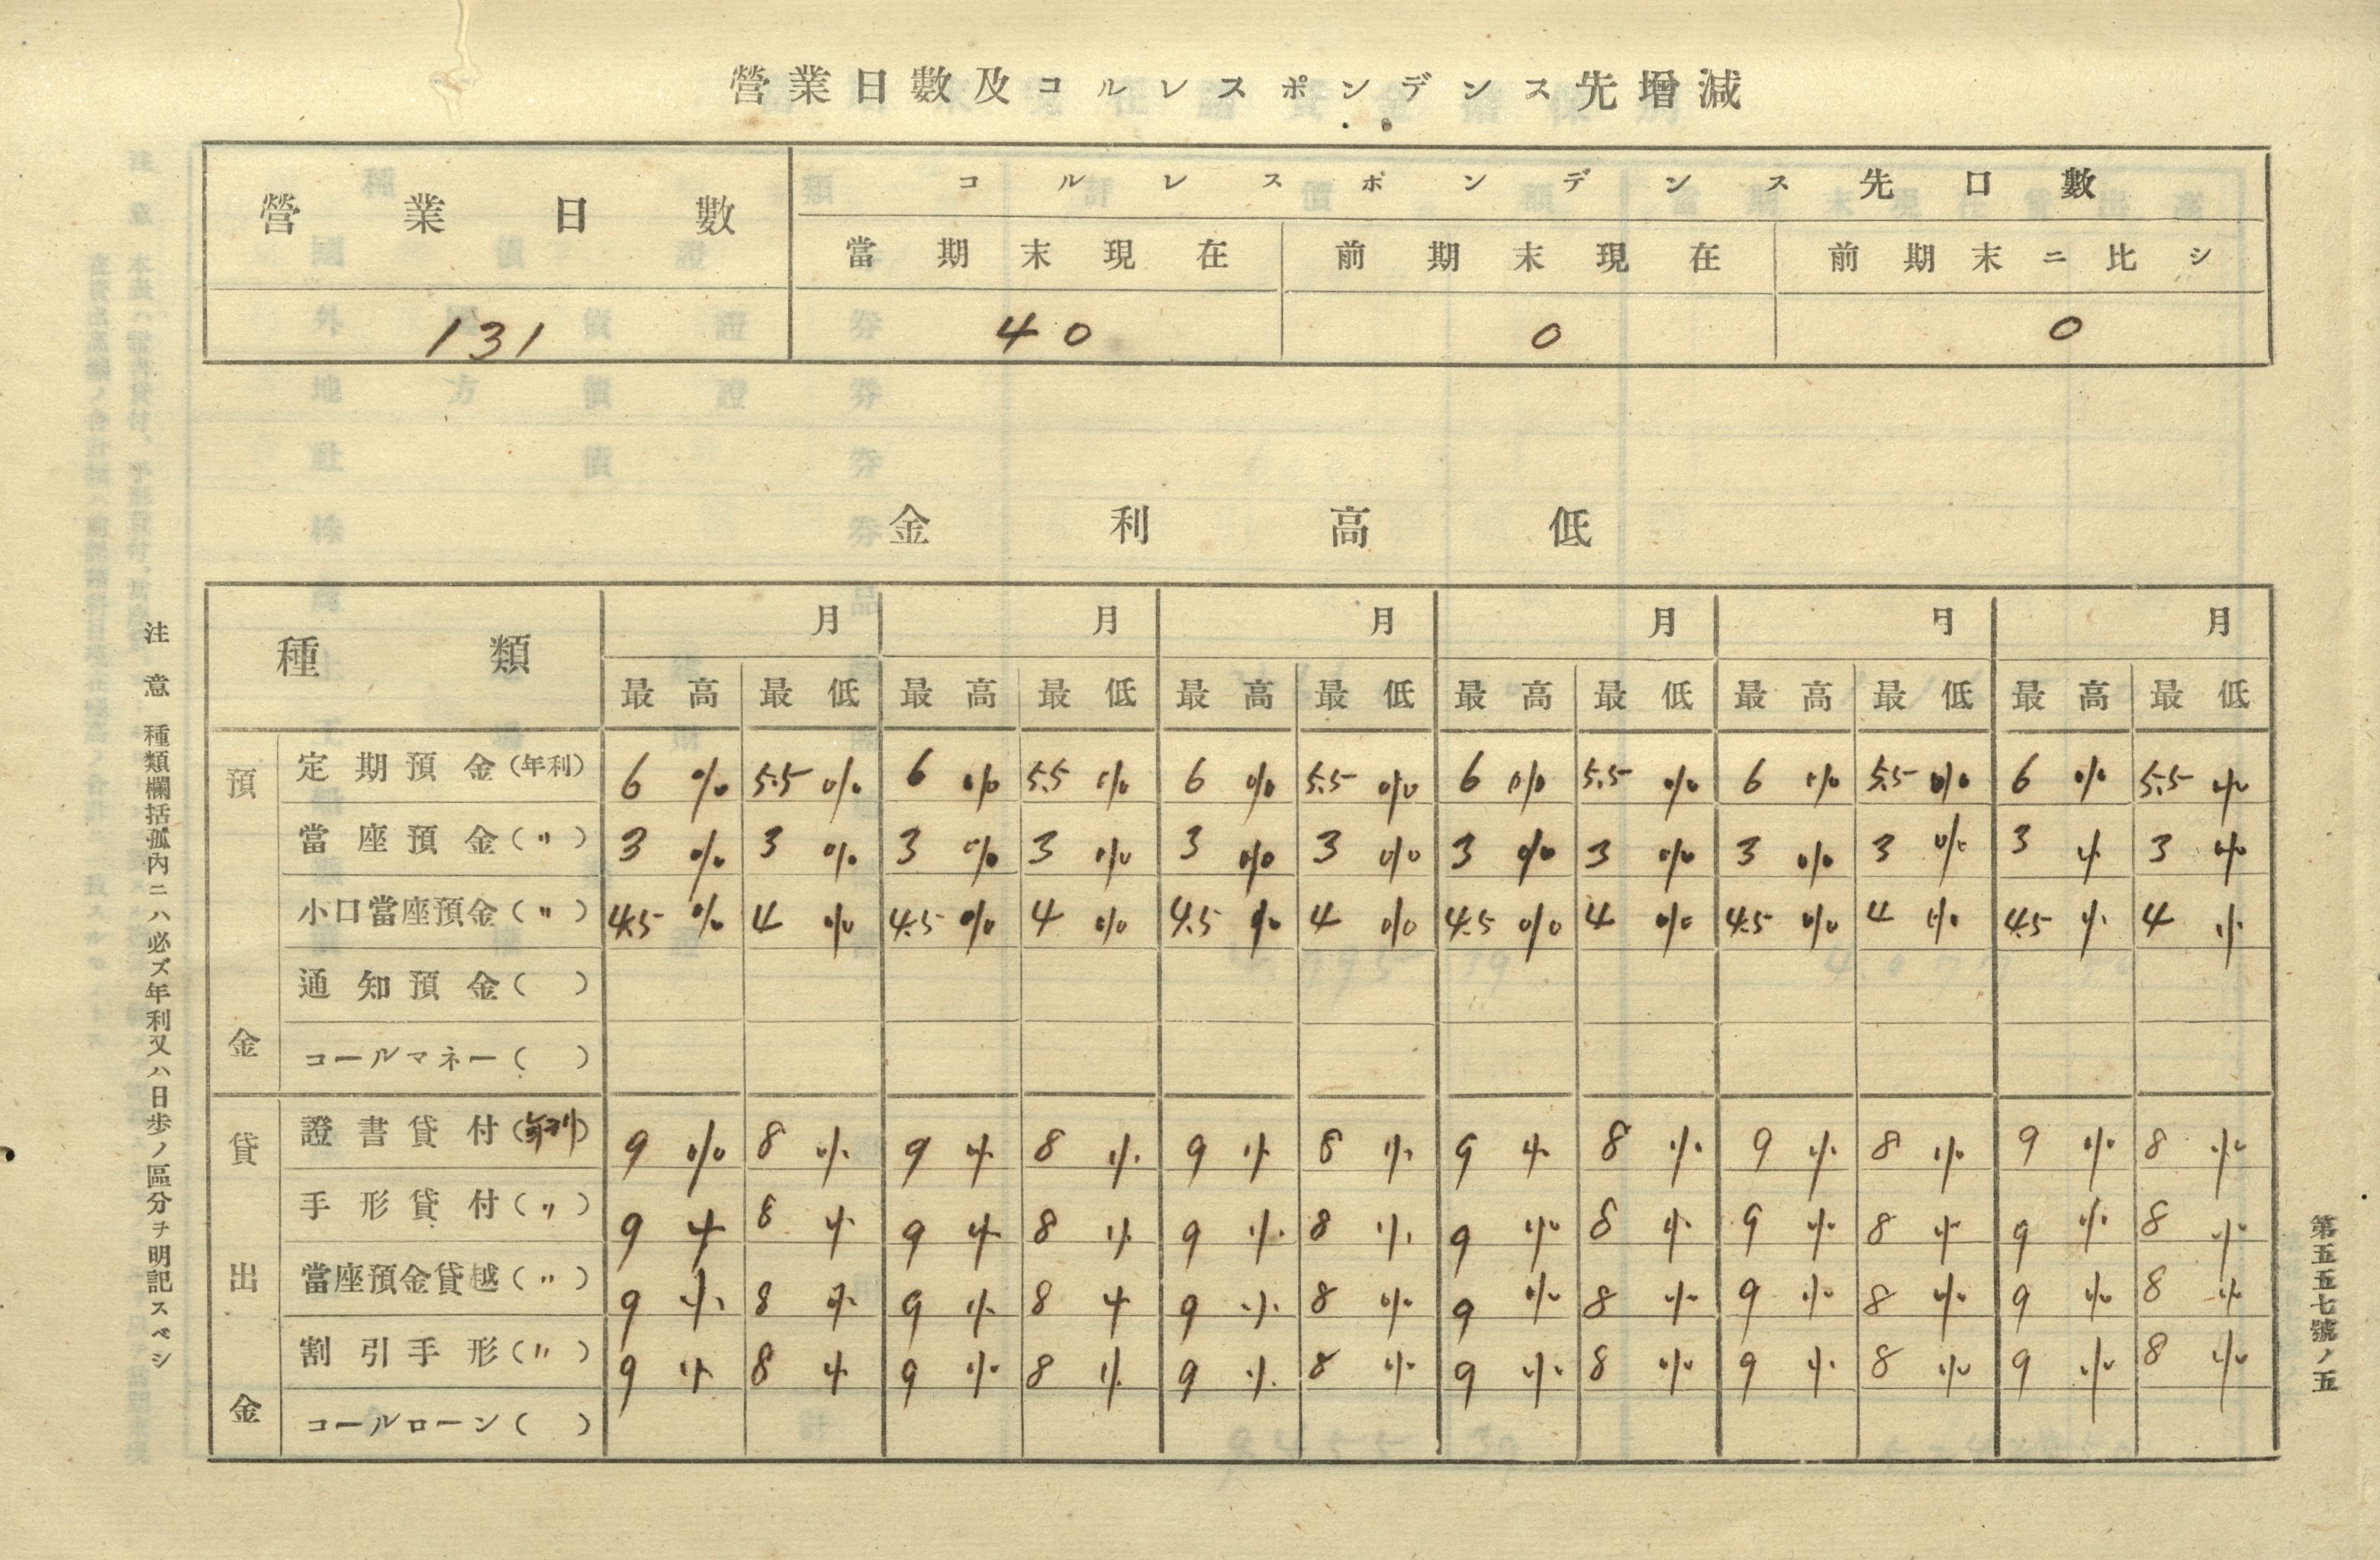 營業日數及コルレスポンデンス先增減
營業日數
コルレスポンデンス先口數
當期末現在 前期末現在 前期末ニ比シ
131 40 0 0
金利高低
種類 月 月 月 月 月 月
最高 最低 最高 最低 最高 最低 最高 最低 最高 最低 最高 最低
預金
定期預金(年利) 6% 5.5% 6% 5.5% 6% 5.5% 6% 5.5% 6% 5.5% 6% 5.5%
當座預金(〃) 3% 3% 3% 3% 3% 3% 3% 3% 3% 3% 3% 3%
小口當座預金(〃) 4.5% 4% 4.5% 4% 4.5% 4% 4.5% 4% 4.5% 4% 4.5% 4%
通知預金( )
コールマネー( )
貸出金
證書貸付(年利) 9% 8% 9% 8% 9% 8% 9% 8% 9% 8% 9% 8%
手形貸付(〃) 9% 8% 9% 8% 9% 8% 9% 8% 9% 8% 9% 8%
當座預金貸越(〃) 9% 8% 9% 8% 9% 8% 9% 8% 9% 8% 9% 8%
割引手形(〃) 9% 8% 9% 8% 9% 8% 9% 8% 9% 8% 9% 8%
コールローン( )
注意 種類欄括孤內ニハ必ズ年利又ハ日歩ノ區分ヲ明記スベシ
第五五七號ノ五